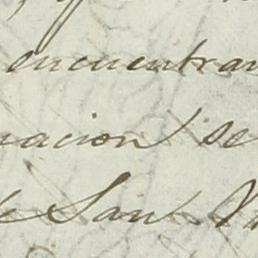 encuentran
nacion se
de San V